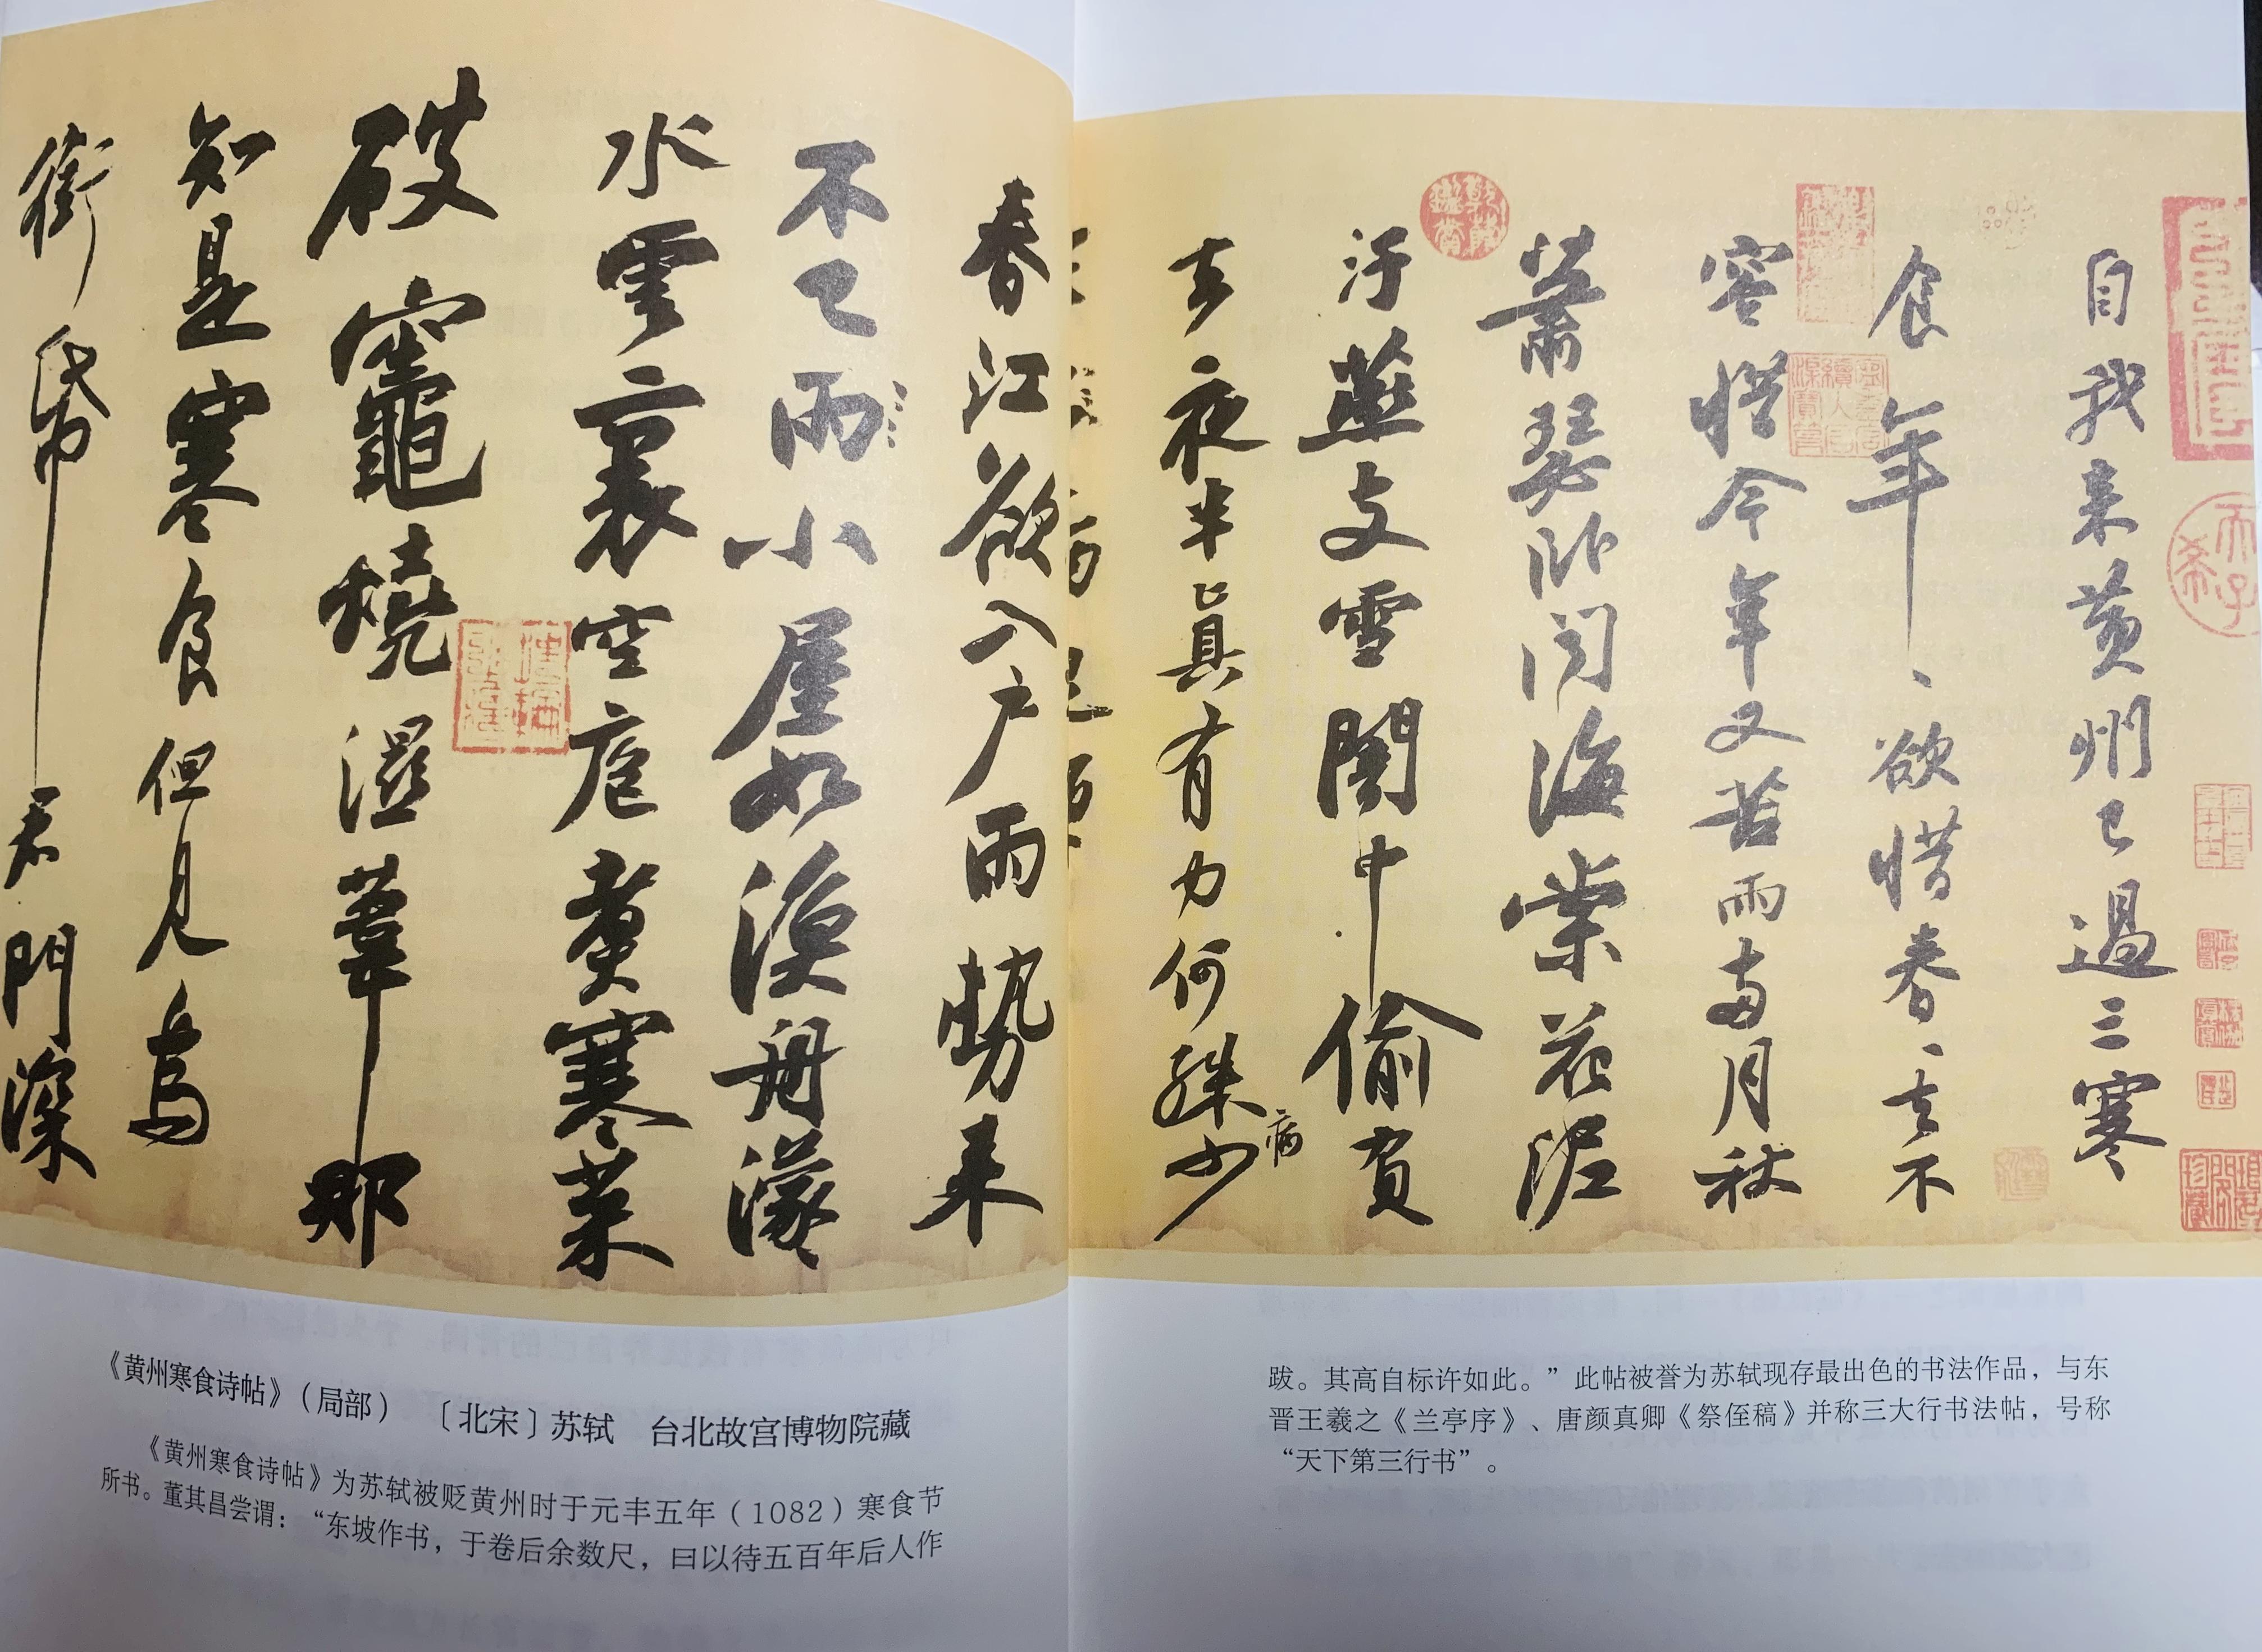 自我来黄州已過三寒
食年、欲惜春、去不
容惜今年又苦雨兩月秋
蕭瑟卧聞海棠花泥
汙燕支雪闇中偷負
去夜半真有力何殊少
病
春江欲入户雨勢来
不已雨小屋如漁舟濛
水雲裏空庖煑寒菜
破竈燒濕葦那
知是寒食但見烏
銜帋君門深
《黄州寒食诗帖》（局部） 〔北宋〕苏轼 台北故宫博物院藏
《黄州寒食诗帖》为苏轼被贬黄州时于元丰五年（1082）寒食节
所书。董其昌尝谓：“东坡作书，于卷后余数尺，曰以待五百年后人作
跋。其高自标许如此。”此帖被誉为苏轼现存最出色的书法作品，与东
晋王羲之《兰亭序》、唐颜真卿《祭侄稿》并称三大行书法帖，号称
“天下第三行书”。